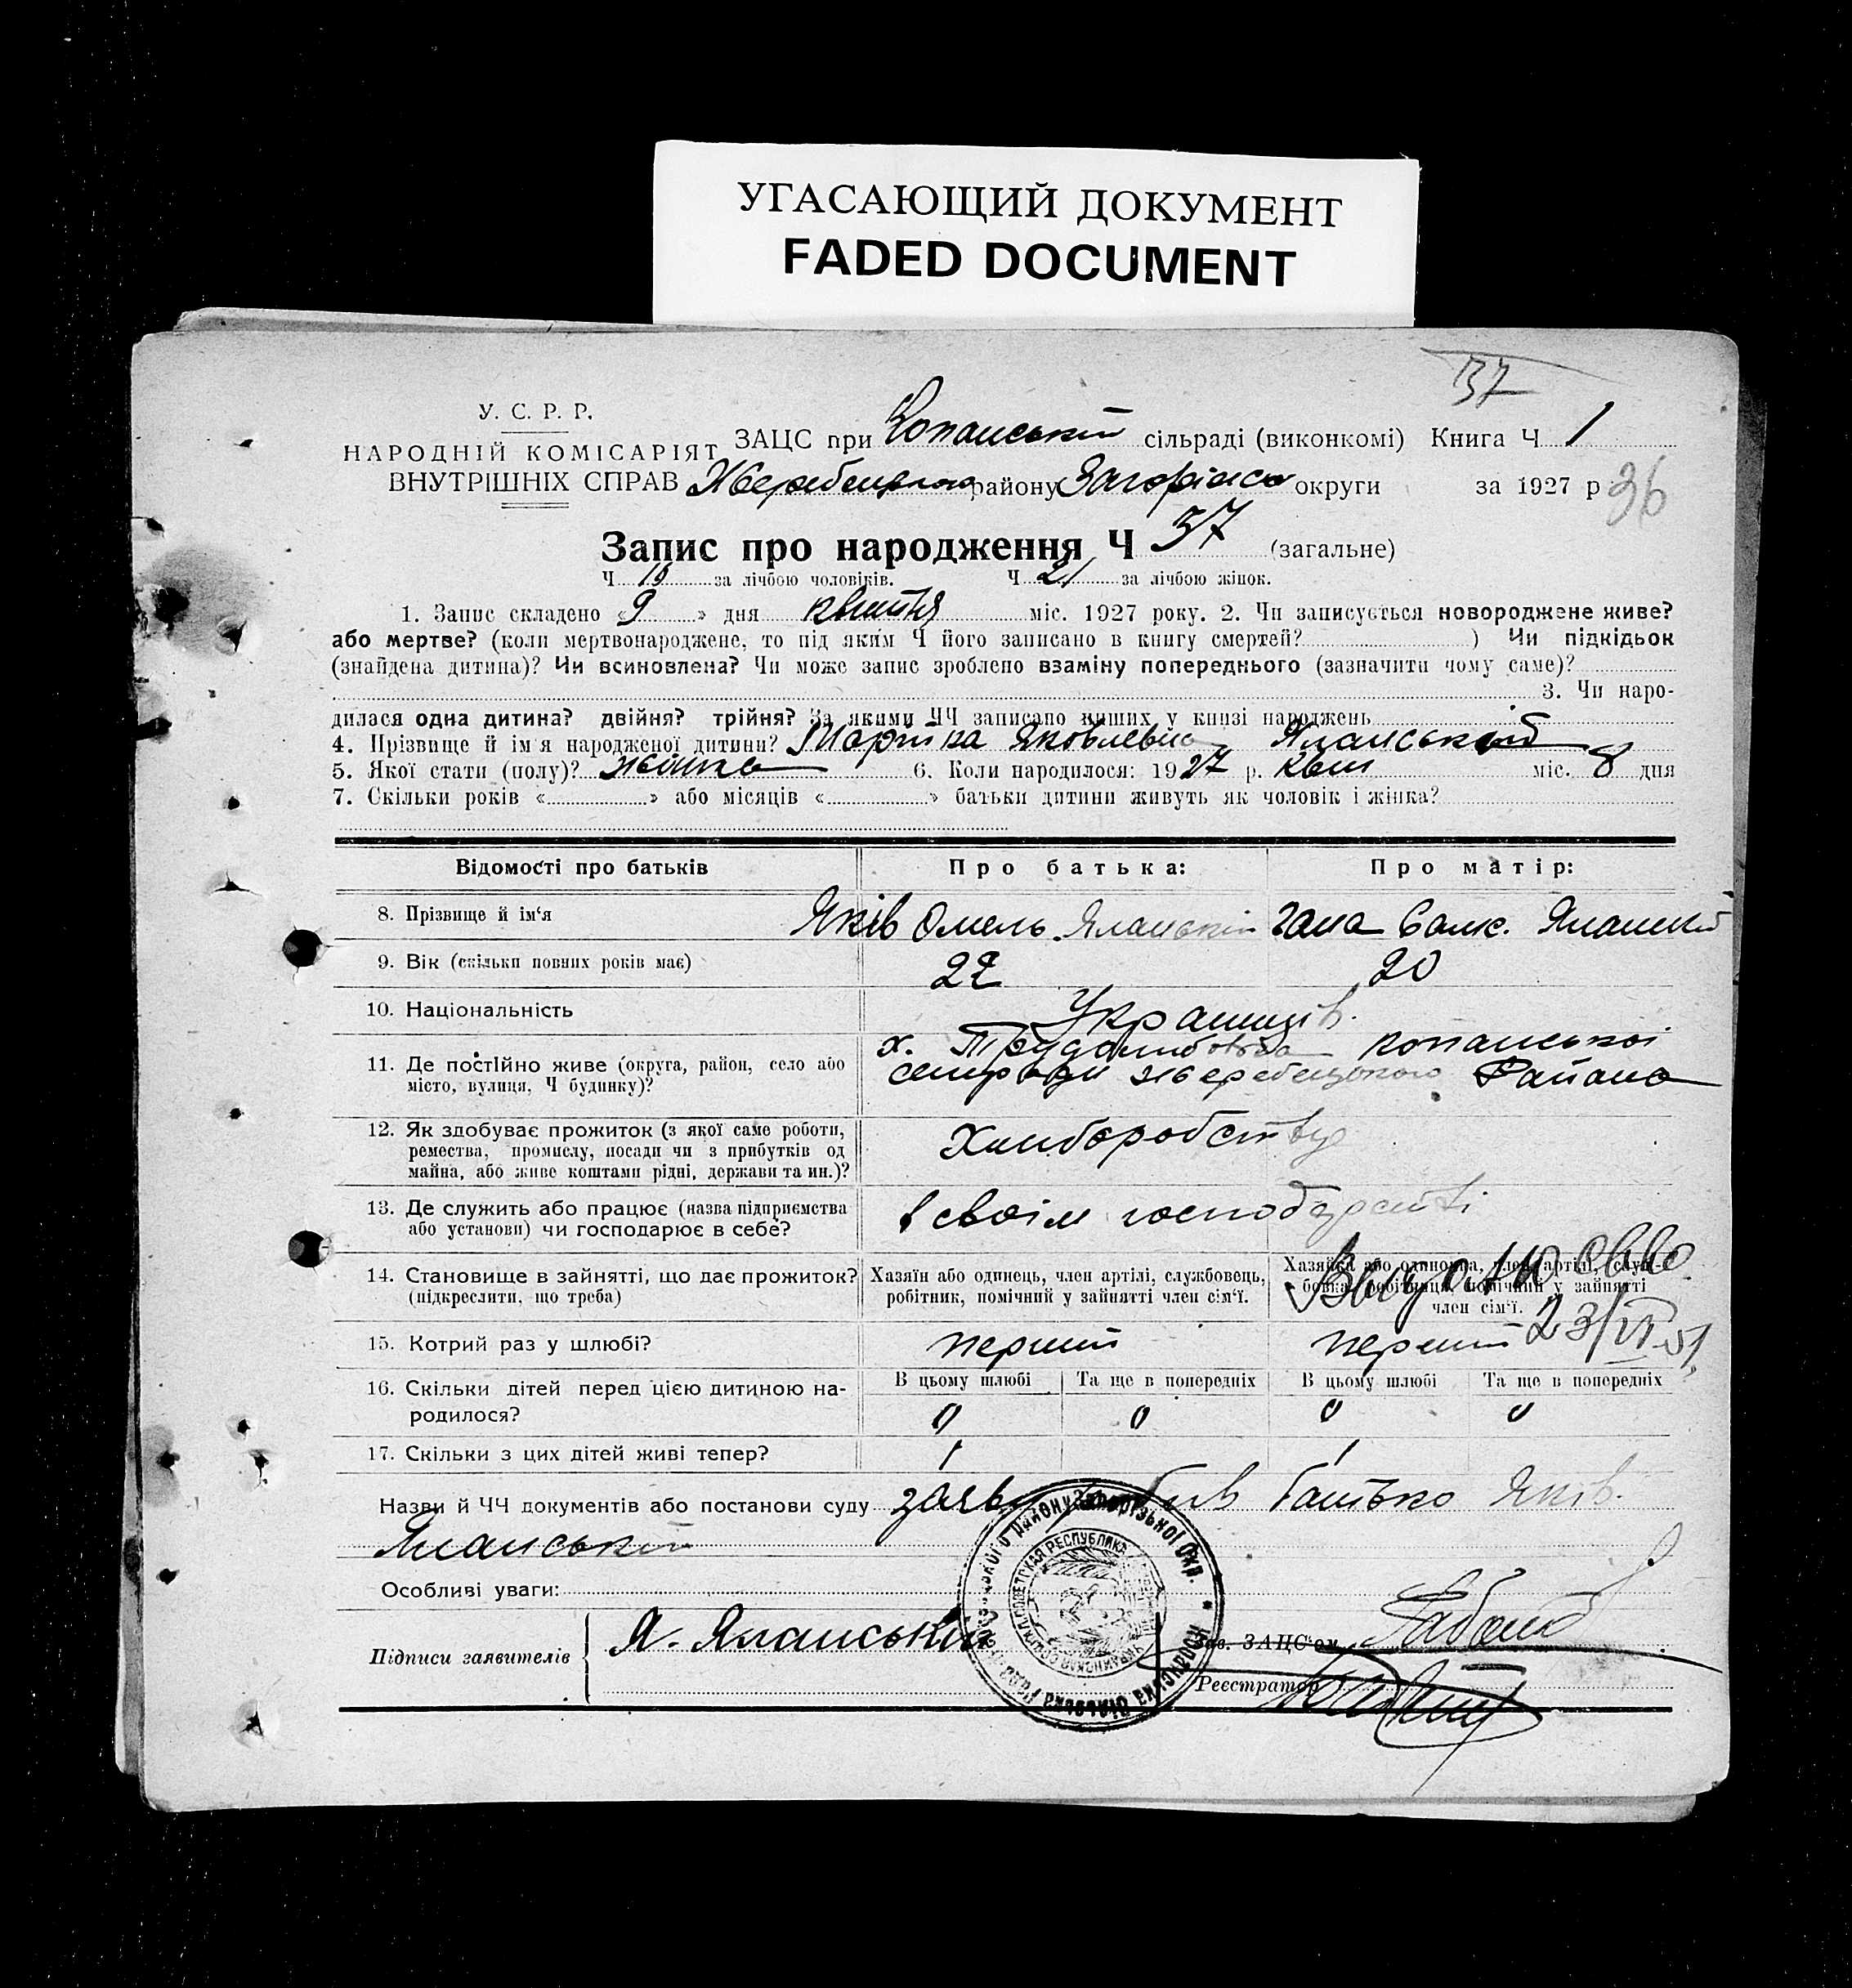 УГАСАЮЩИЙ ДОКУМЕНТ
FADED DOCUMENT
37
У. С. Р. Р.
НАРОДНІЙ КОМІСАРІЯТ
ВНУТРІШНІХ СПРАВ
ЗАЦС при Копанській сільраді (виконкомі) Книга Ч 1
Жеребецького району округи за 1927 р 36
Запис про народження Ч 37 (загальне)
Ч за лічбою чоловіків. Ч 21 за лічбою жінок.
1. Запис складено «9» дня квітня міс. 1927 року. 2. Чи записується новороджене живе?
або мертве? (коли мертвонароджене, то під яким Ч його записано в книгу смертей? ) Чи підкідьок
(знайдена дитина)? Чи всиновлена? Чи може запис зроблено взаміну попереднього (зазначити чому саме)?
3. Чи наро-
дилася одна дитина? двійня? трійня? За якими ЧЧ записано инших у книзі народжень
4. Прізвище й ім'я народженої дитини? Яланський
5. Якої стати (полу)? жіноча 6. Коли народилося: 1927 р. квіт міс. 8 дня
7. Скільки років « » або місяців « » батьки дитини живуть як чоловік і жінка?
Відомості про батьків Про батька: Про матір:
8. Прізвище й ім'я Яків Омель Яланській Яланский
9. Вік (скільки повних років має) 22 20
10. Національність Українців.
11. Де постійно живе (округа, район, село або місто, вулиця, Ч будинку)?
х. Копанської
сельради Жеребецького Района
12. Як здобуває прожиток (з якої саме роботи, ремества, промислу, посади чи з прибутків од майна, або живе коштами рідні, держави та ин.)?
Хлиборобству
13. Де служить або працює (назва підприємства або установи) чи господарює в себе?
в своім господарстві
14. Становище в зайнятті, що дає прожиток? (підкреслити, що треба)
Хазяїн або одинець, член артілі, службовець, робітник, помічний у зайнятті член сім'ї.
Хазяйка або одиночка, член артілі, службовка, робітниця, помічний у зайнятті член сім'ї.
23/VI 51
15. Котрий раз у шлюбі? перший перший
16. Скільки дітей перед цією дитиною народилося?
В цьому шлюбі Та ще в попередніх В цьому шлюбі Та ще в попередніх
0 0 0 0
17. Скільки з цих дітей живі тепер? 1 1
Назви й ЧЧ документів або постанови суду заяву робив батько Яків.
Яланській
Особливі уваги:
Підписи заявителів Я. Яланській
Зав. ЗАЦС'ом
Реєстратор